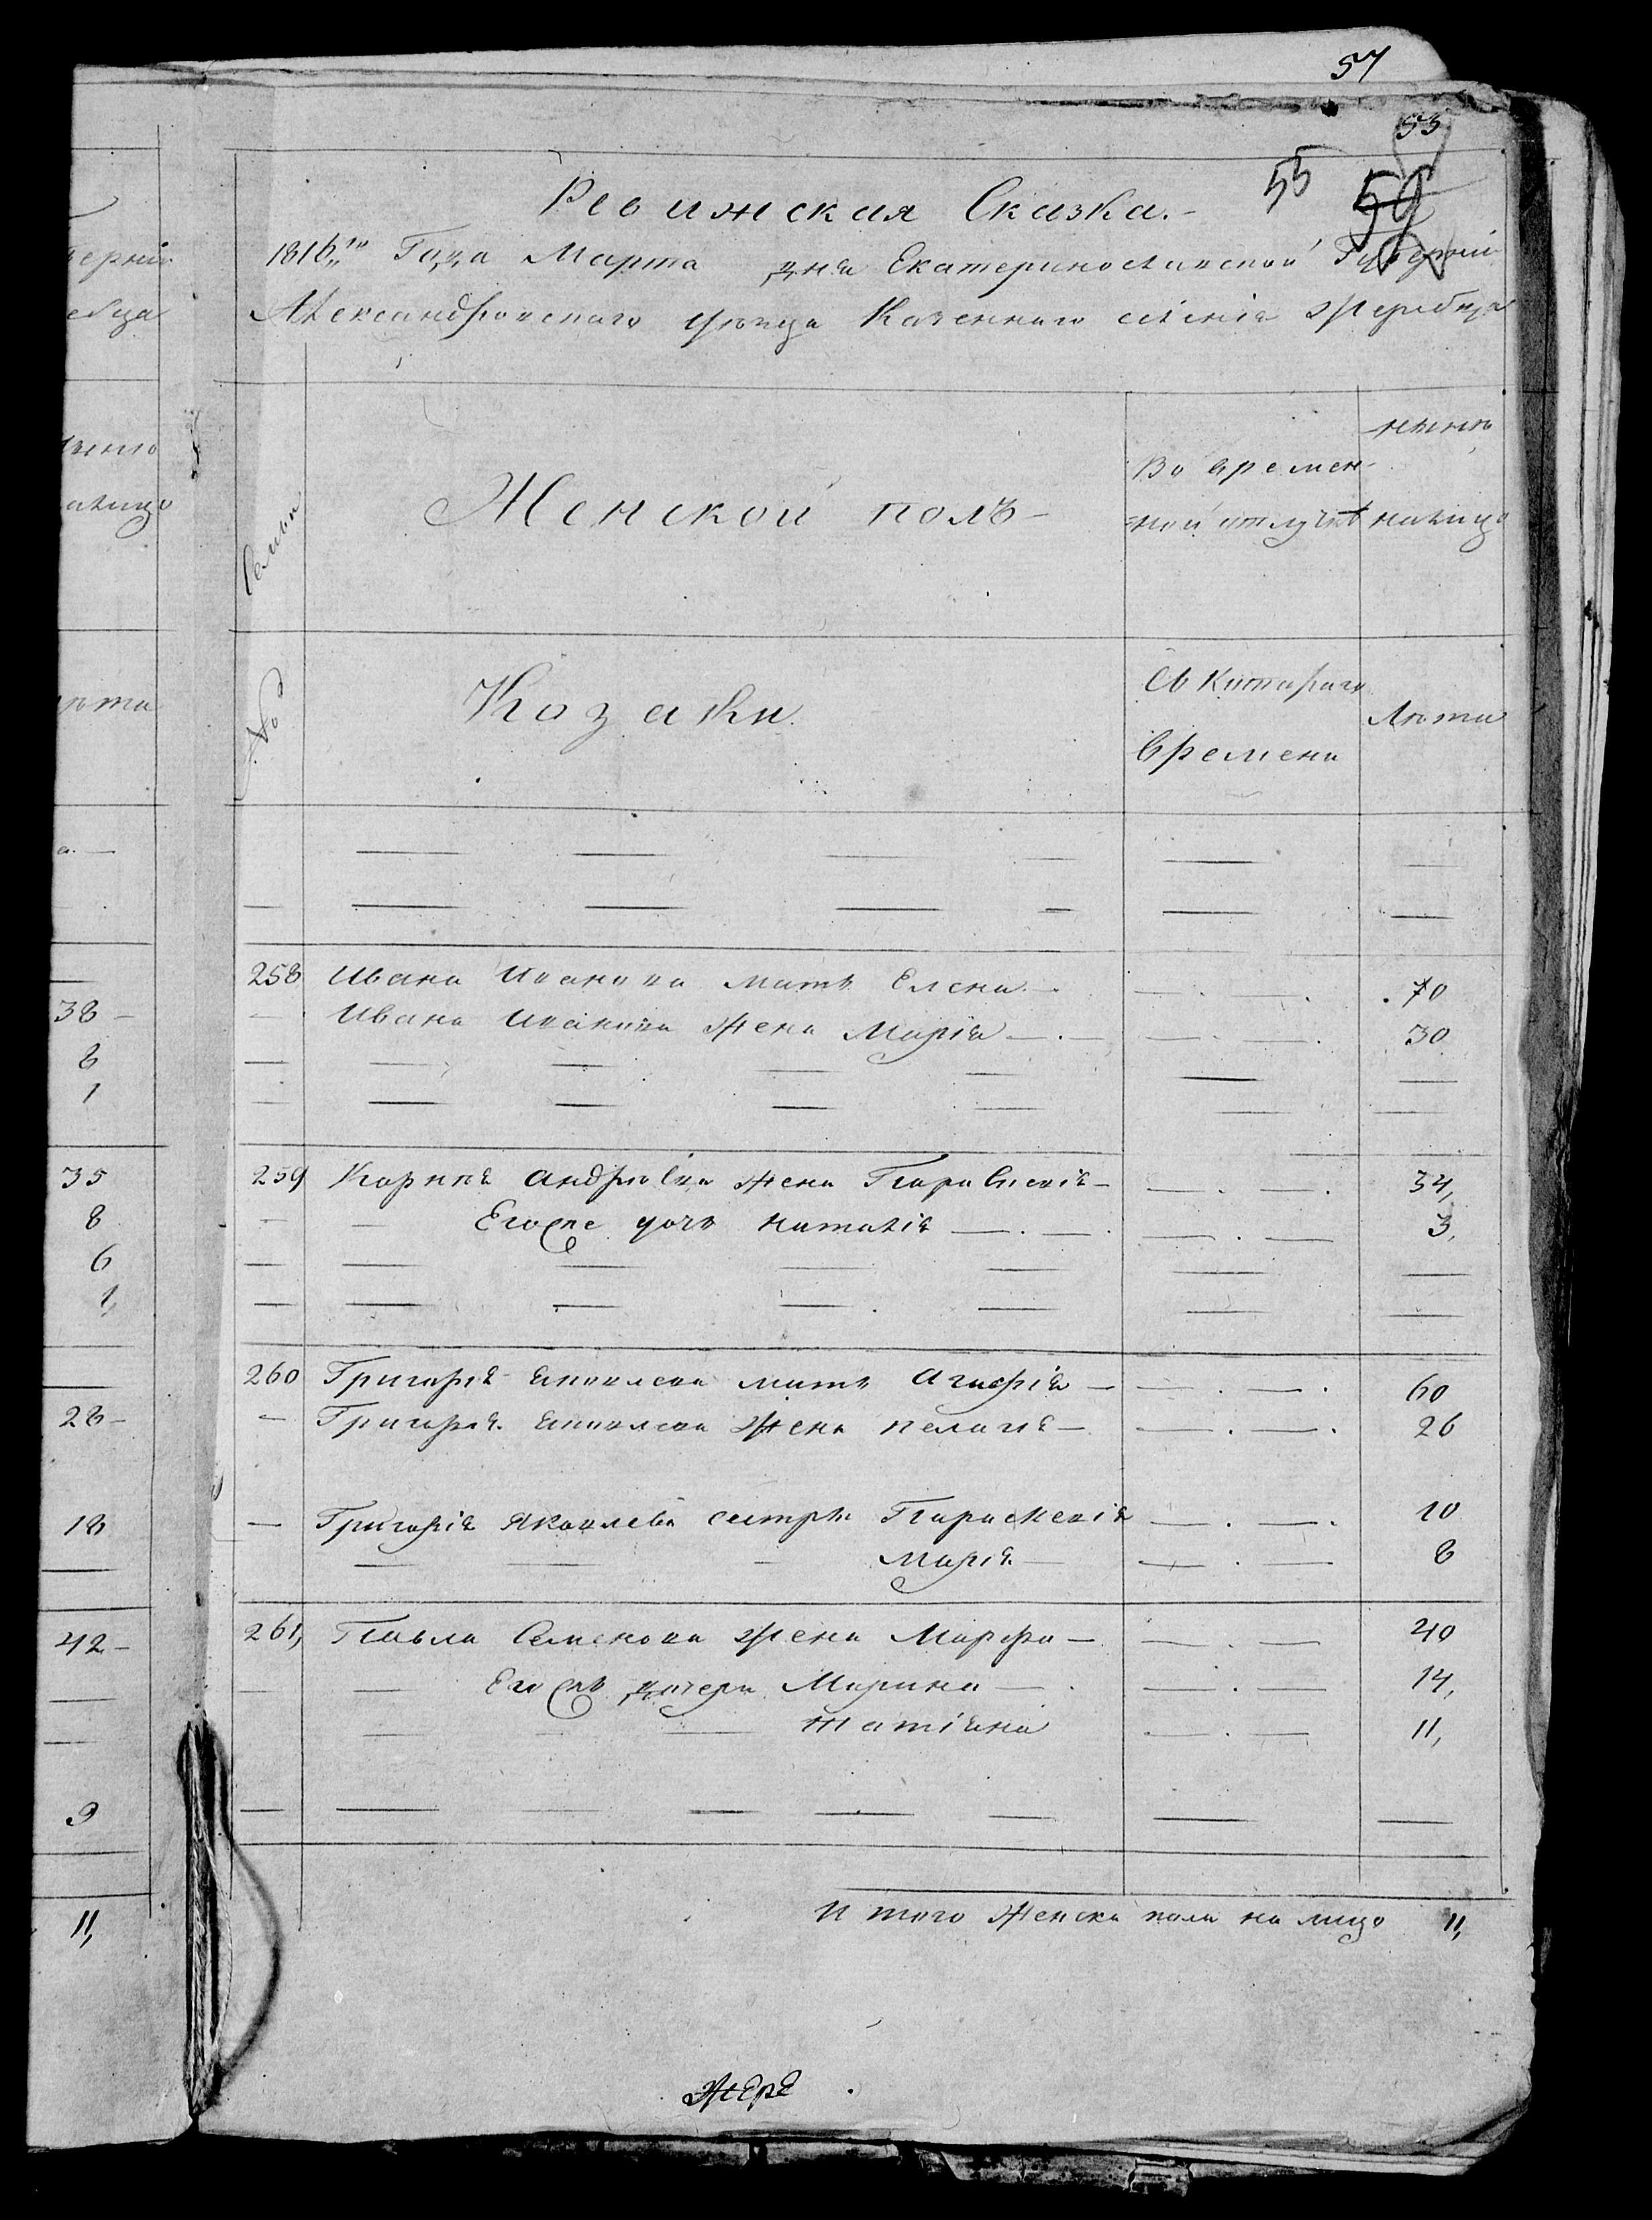 57
53
55 59
Ревижская Сказка.-
1816го Года Марта дня Екатеринославской Губернии
Александровскаго уѣзда Казеннаго селенія Жеребца
ернии
ебца
Женской полъ-
Во времен-
ной отлучкѣ
нынѣ
налицо
Семьи
№
Козаки.
Съ котораго
времени
Лѣта
258 Ивана Иванова мать Елена — 70
Ивана Иванова жена Марія — 30
38 -
8
1
259 Карпа Андреева жена Параскевія — 34,
Егоже дочь Наталія — 3,
35
8
6
1,
260 Григорія Яковлева мать Агафія — 60
Григорія Яковлева жена Пелагія — 26
28 -
Григорія Яковлева сестры Параскевія — 10
18
Марія — 8
261, Павла Семенова жена Марфа — 40
42 -
Егожъ дочери Марина — 14,
Татіяна — 11,
9
Итого женска пола на лицо 11,
11,
Жере